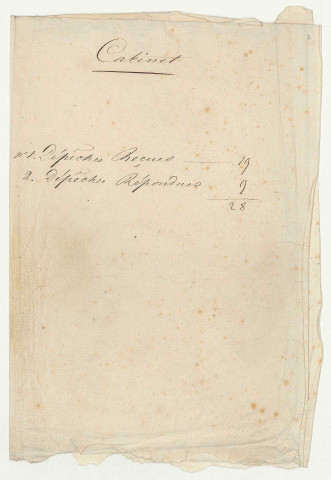 Cabinet
n° 1. Dépêches Reçues 19
2. Dépêches Répondues 9
28